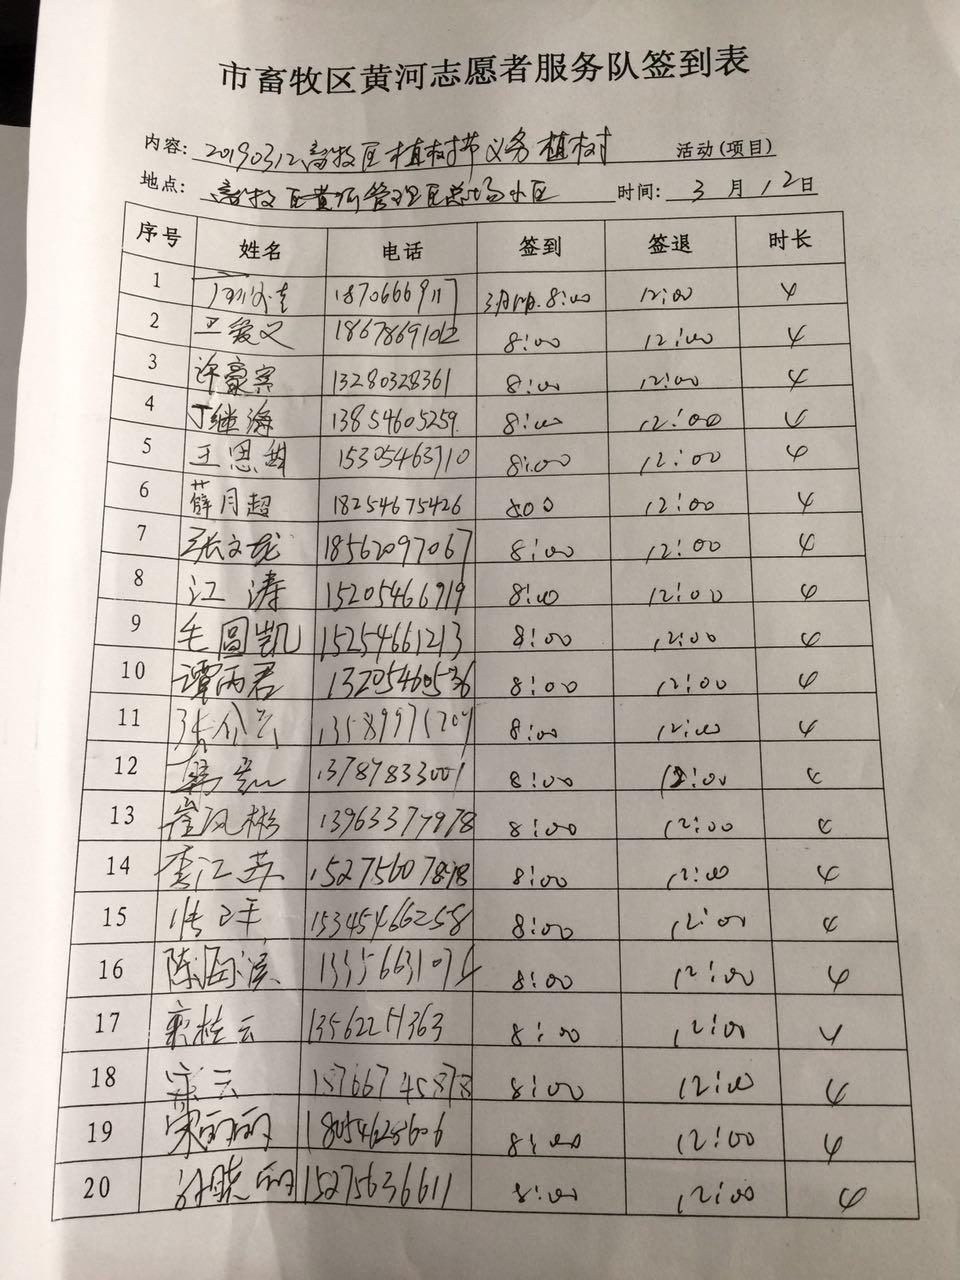 市畜牧区黄河志愿者服务队签到表
内容: 20190312畜牧区植树节义务植树 活动(项目)
地点: 畜牧区黄河管理区总场小区 时间: 3 月 12 日
序号 姓名 电话 签到 签退 时长
1 18706669117 3月12日. 8:00 12:00 4
2 王爱义 18678691012 8:00 12:00 4
3 许豪宾 13280328361 8:00 12:00 4
4 丁继海 13854605259. 8:00 12:00 4
5 王思哲 15305463710 8:00 12:00 4
6 薛月超 18254675426 800 12:00 4
7 张文龙 18562097067 8:00 12:00 4
8 江涛 15205466919 8:00 12:00 4
9 毛圆凯 15254661213 8:00 12:00 4
10 谭丙君 13205460536 8:00 12:00 4
11 8:00 12:00 4
12 13787833001 8:00 12:00 4
13 崔风彬 8:00 12:00 4
14 李江苏 8:00 12:00 4
15 15345466258 8:00 12:00 4
16 8:00 12:00 4
17 栾桂云 8:00 12:00 4
18 宋云 8:00 12:00 4
19 宋丽丽 18054625606 8:00 12:00 4
20 15275636611 8:00 12:00 4